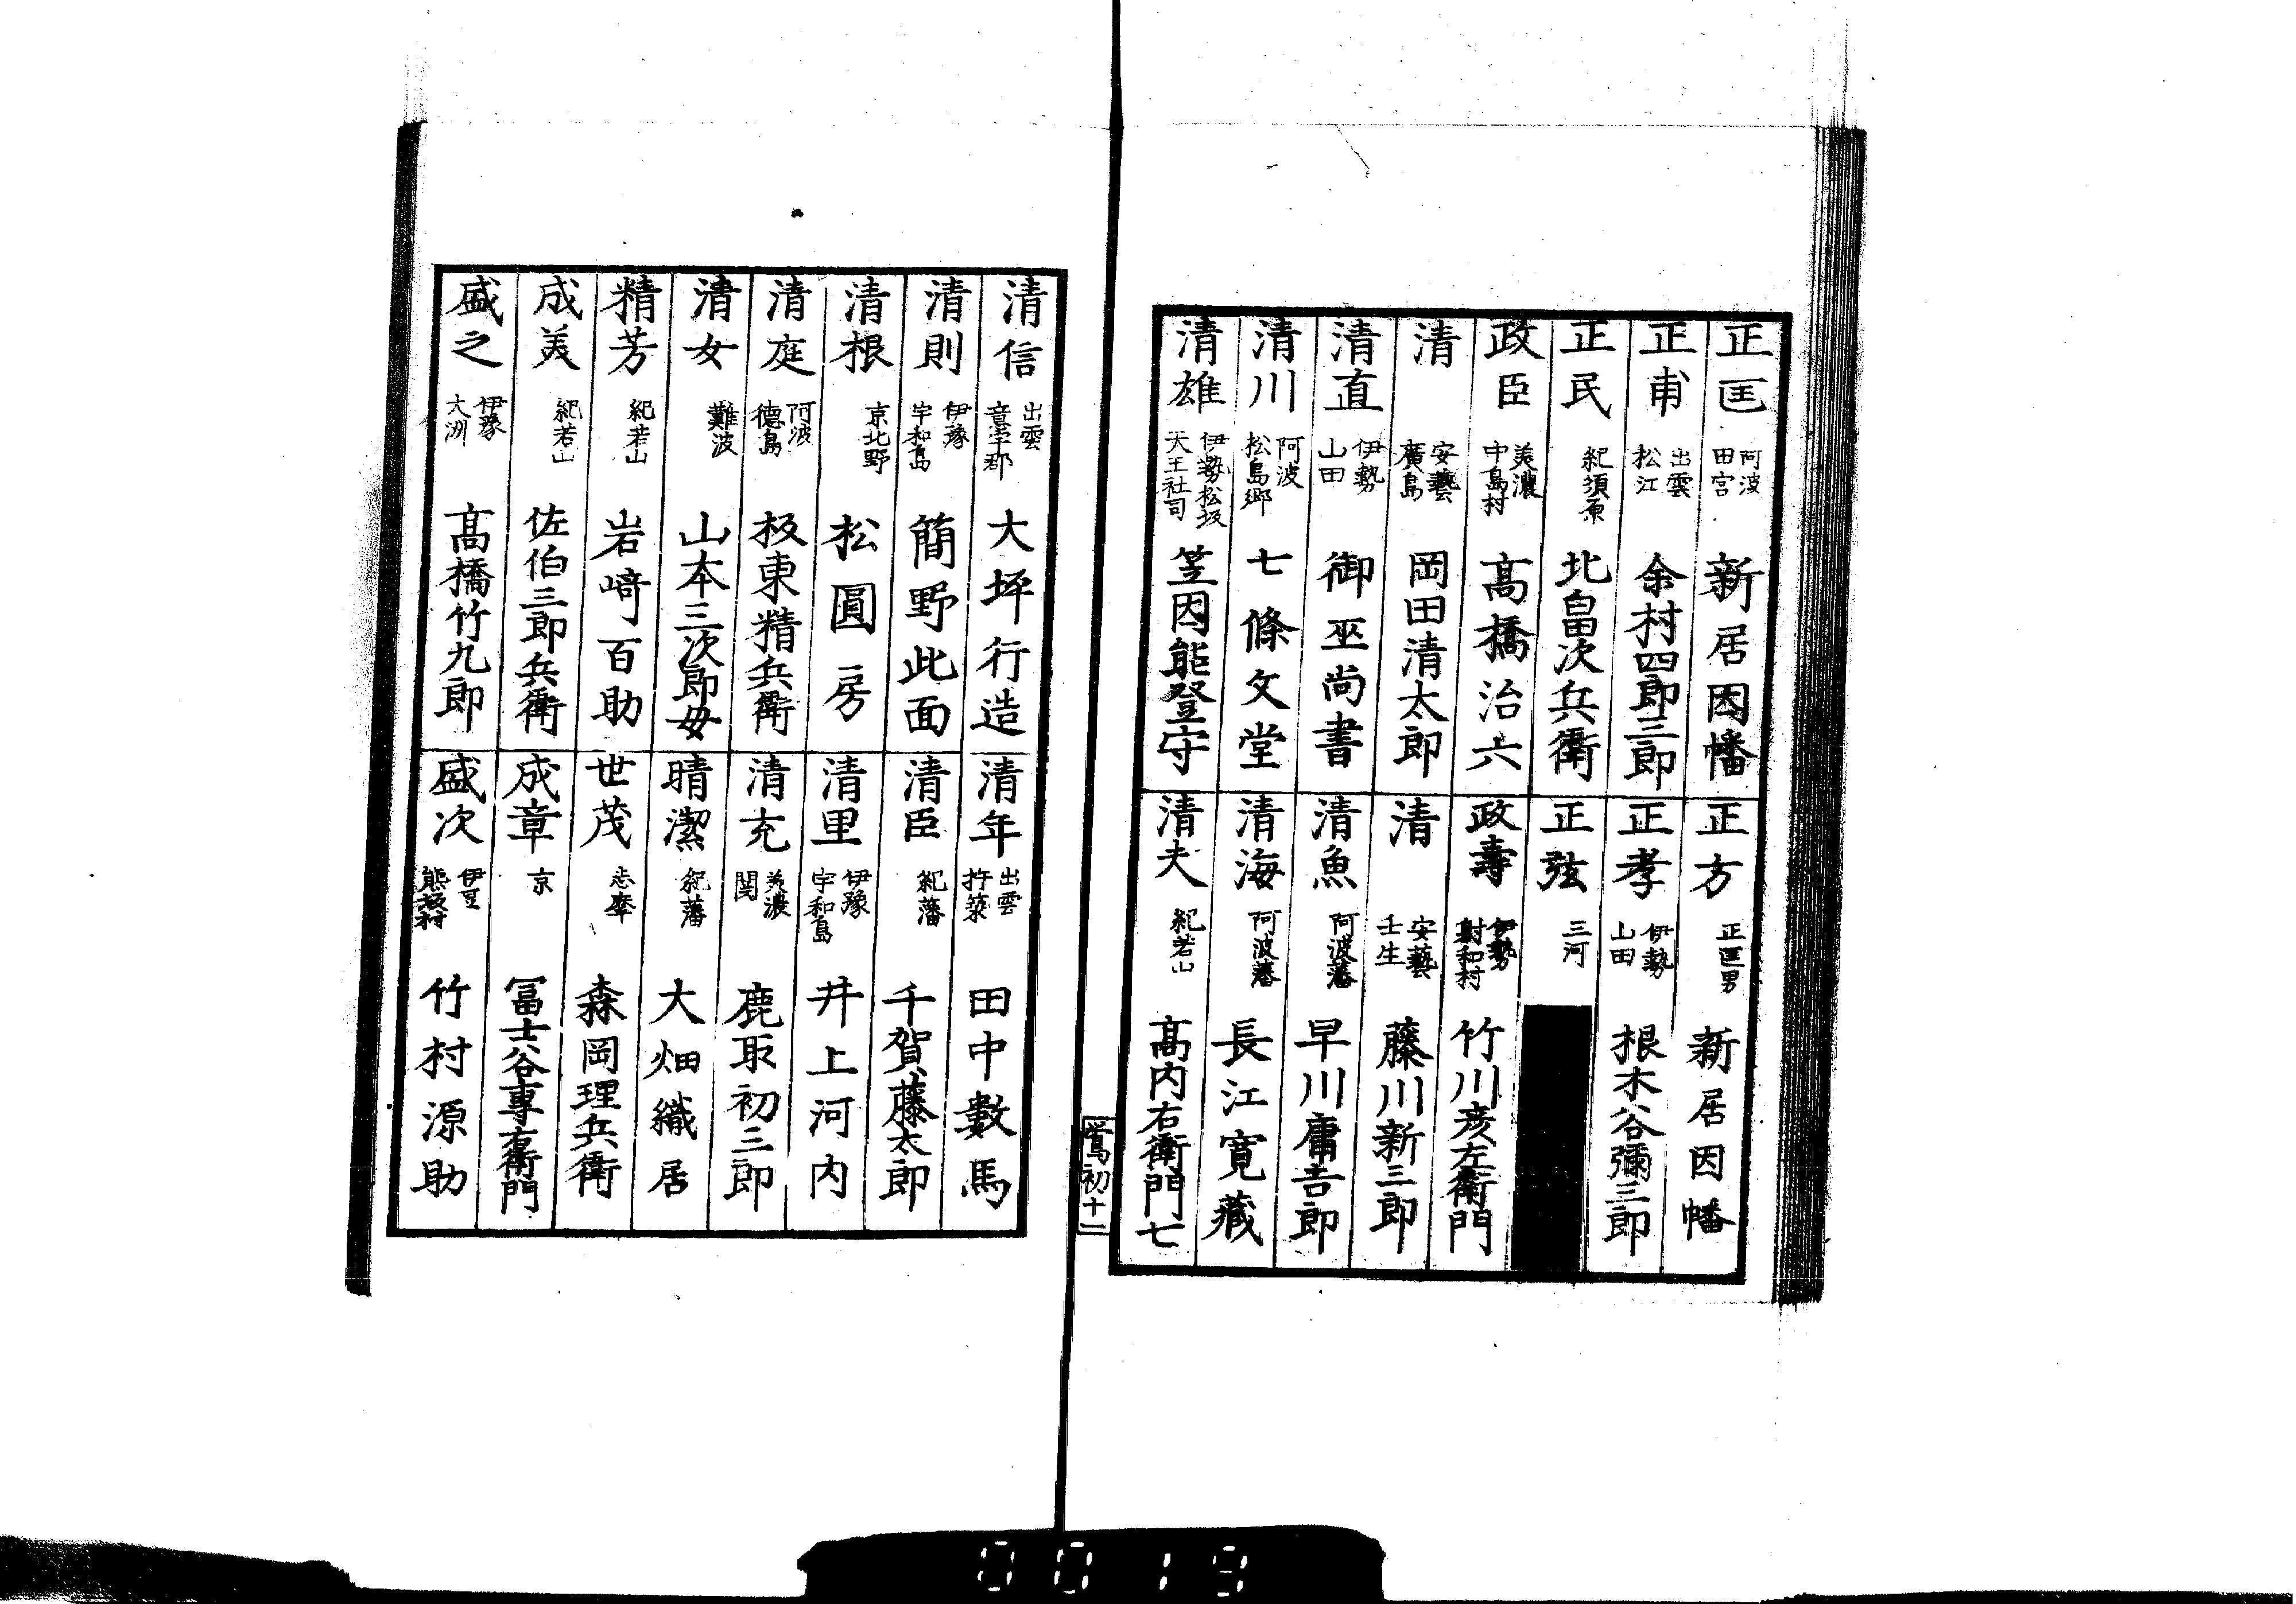 正匡 阿波田宮 新居因幡
正甫 出雲松江 余村四郎三郎
正民 紀須原 北畠次兵衞
政臣 美濃中島村 髙橋治六
清 安藝廣島 岡田清太郎
清直 伊勢山田 御巫尚書
清川 阿波松島郷 七條文堂
清雄 伊勢松坂天王社司 笠因能登守
正方 正匡男 新居因幡
正孝 伊勢山田 根木谷彌三郎
正弦 三河
政壽 伊勢射和村 竹川彦左衞門
清 安藝壬生 藤川新三郎
清魚 阿波藩 早川庸吉郎
清海 阿波藩 長江寛藏
清夫 紀若山 髙内右衞門七
鶯初十一
清信 出雲意宇郡 大坪行造
清則 伊豫宇和島 簡野此面
清根 京北野 松圓房
清庭 阿波德島 板東精兵衞
清女 難波 山本三次郎母
精芳 紀若山 岩﨑百助
成美 紀若山 佐伯三郎兵衞
盛之 伊豫大洲 髙橋竹九郎
清年 出雲杵築 田中數馬
清臣 紀藩 千賀藤太郎
清里 伊豫宇和島 井上河内
清充 美濃関 鹿取初三郎
晴潔 紀藩 大畑織居
世茂 志摩 森岡理兵衞
成章 京 冨士谷專右衞門
盛次 伊豆熊坂村 竹村源助
0019